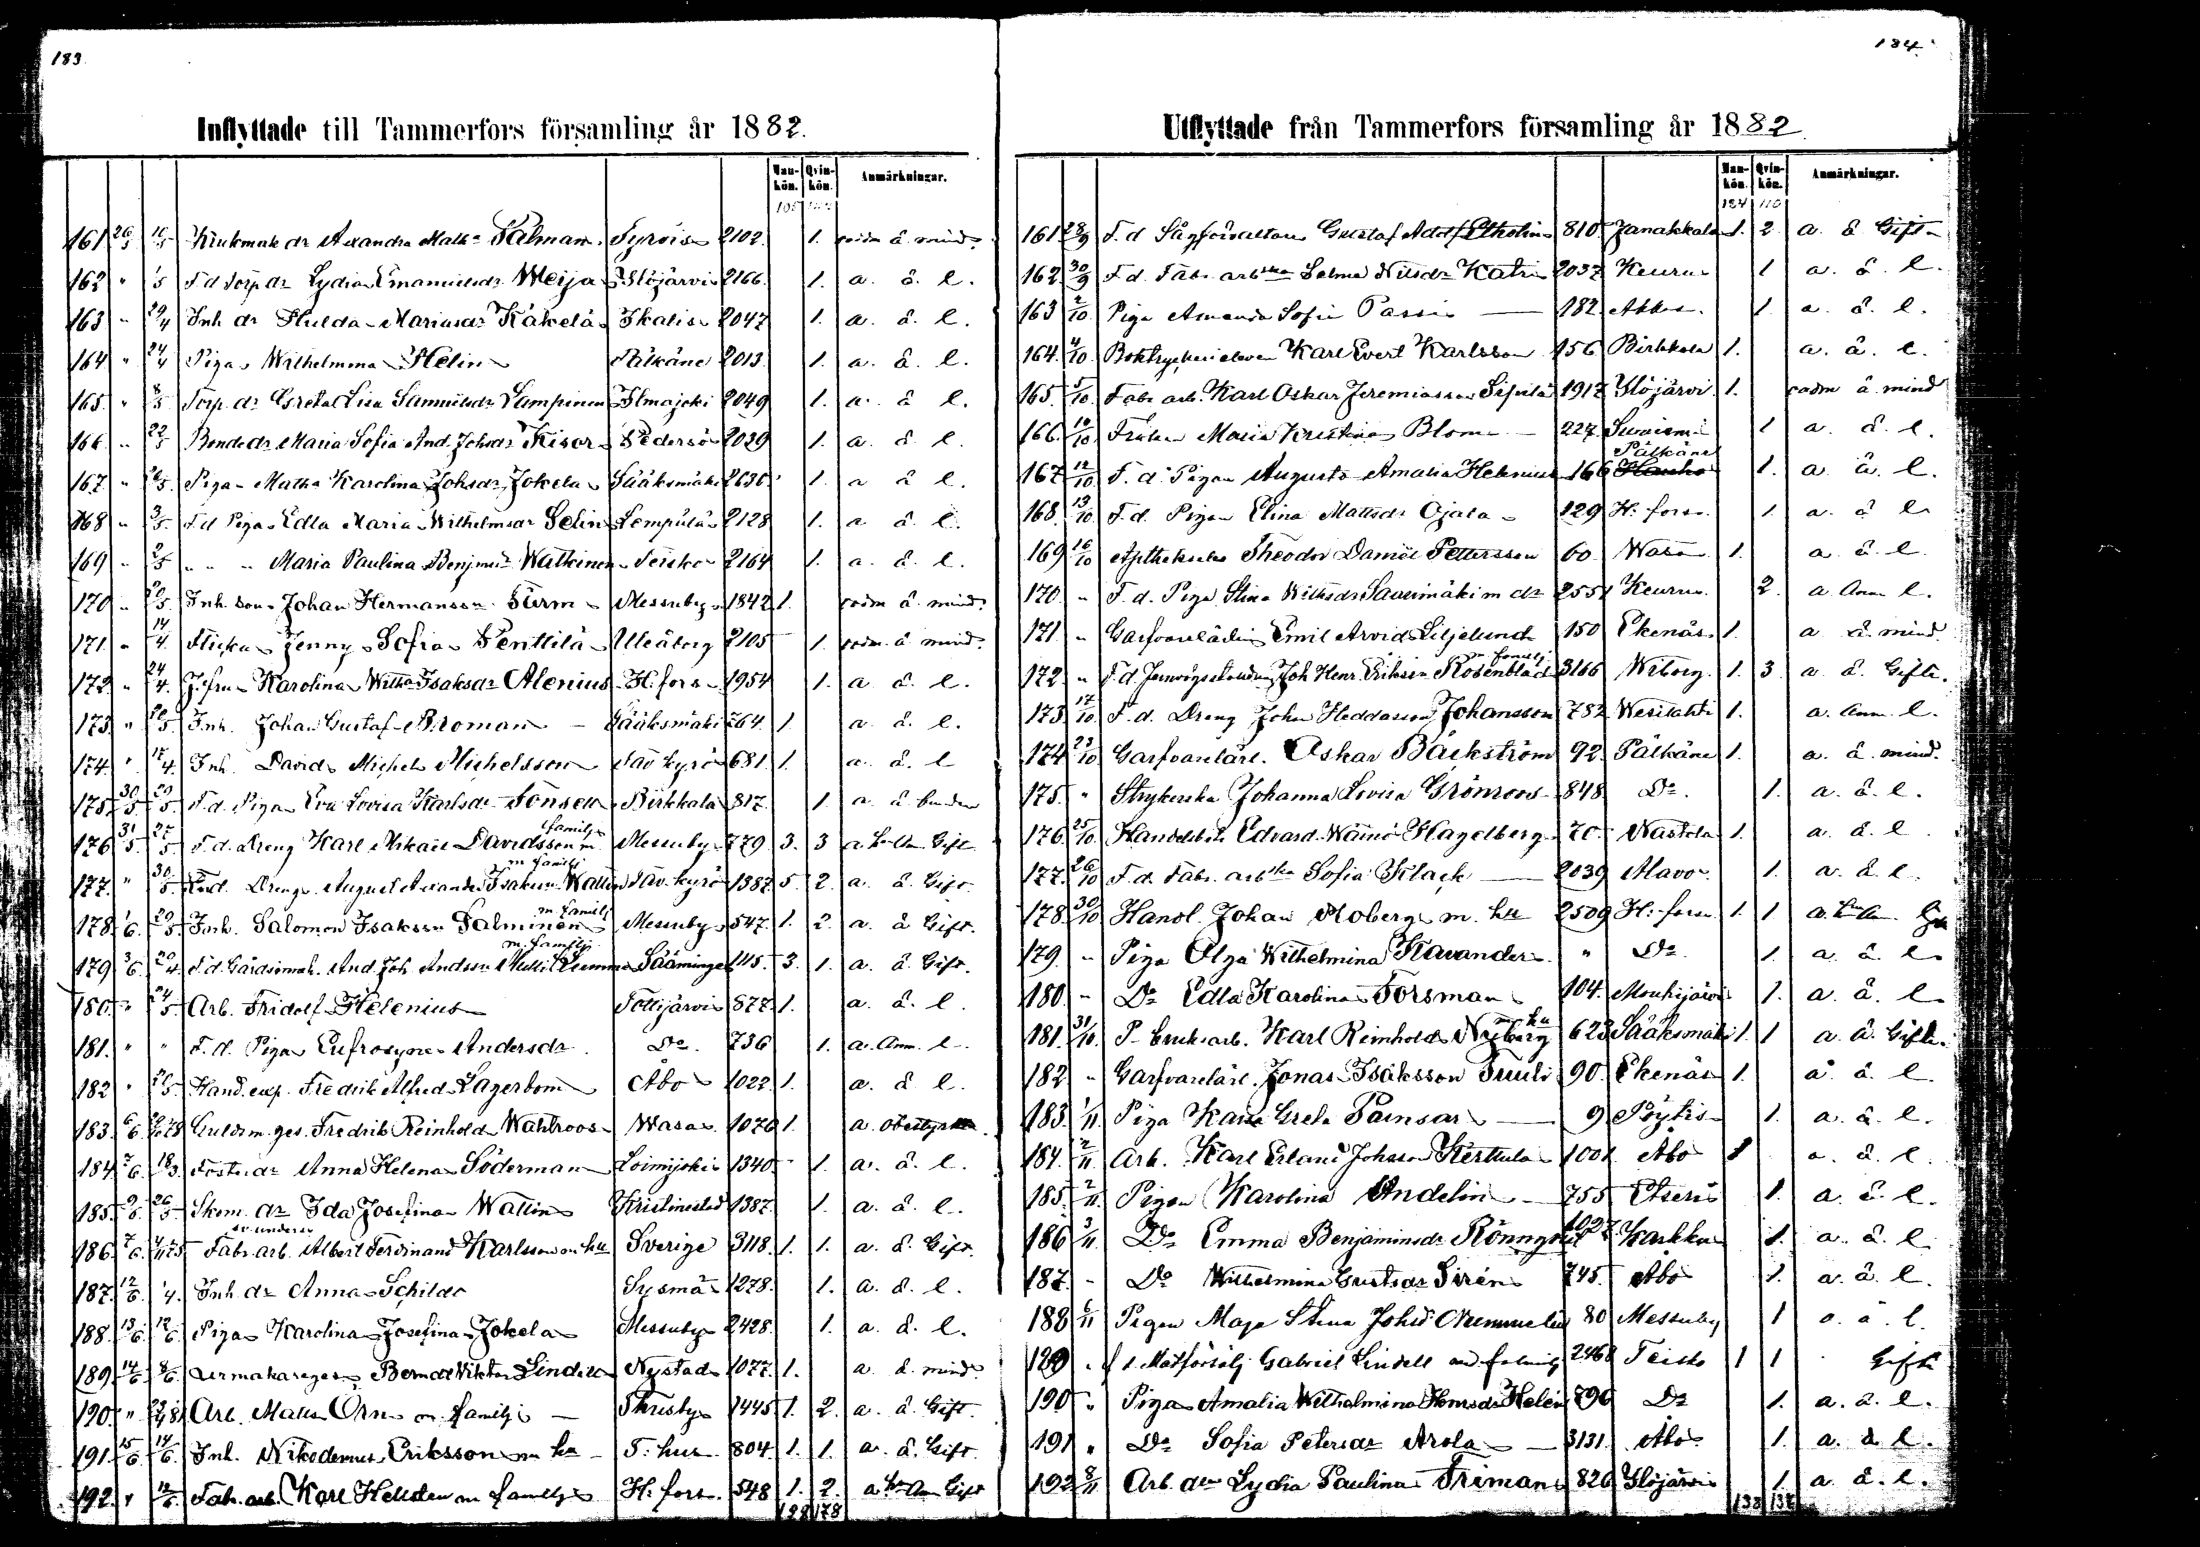 183
Inflyttade till Tammerfors församling år 1882.
Man-kön. Qvin-kön. Anmärkningar.
161 26/5 16/5 Krukmak dr Alexandra Salman Tyrvis 2102. 1.
162 " F.d Torp dr Lydia Emanuelsdr Meija Ylöjärvi 2166. 1. a. å. l.
163 " 29/4 Inh dr Hulda Mariasdr Käkelä Ikalis 2047 1. a. å. l.
164 " 24/4 Piga Wilhelmina Helin Pälkäne 2013. 1. a. å. l.
165. " 8/5 Torp. dr Greta Lisa Samuelsdr Lampinen Ilmajoki 2049 1. a. å l.
166 " 22/5 Bonde dr Maria Sofia And. Johsdr Kisor Pedersö 2039 1. a. å. l.
167. " Piga Matha Karolina Johsdr Jokela Sääksmäki 2636 1. a å l.
168 " 3/5 F.d Piga Edla Maria Wilhelmsdr Selin Lempälä 2128 1. a. å l.
169 " 2/5 " " " Maria Paulina Benjmsdr Watkinen Teisko 2164 1. a. å. l.
170 " 20/5 Inh. son Johan Hermansson Turm Messuby 1842 1. å mind.
171. " 14/4 Flicka Jenny Sofia Penttilä Uleåborg 2105 1. å mind.
172 " 24/4 Jfru Karolina Isaksdr Alenius H. fors 1954 1. a å. l.
173. " Inh. Johan Gustaf Broman Sääksmäki 264. 1 a. å. l.
174. " 17/4 Inh. David Michels Michelsson Tav kyrö 681. 1. a. å. l
175. 30/5 20/5 F.d. Piga Eva Lovisa Karlsdr Tonsell Birkkala 817. 1. a. å
176 31/5 27/5 F.d. Dreng Karl Mikael Davidsson m familj Messuby 779 3. 3 Gift
177. " 30/5 F.d. Dreng August Alexander Isaksson Wallin m familj Tav. kyrö 1387. 5. 2. a. å. Gift.
178. 1/6 20/5 Inh. Salomon Isaksson Salminen m. familj Messuby 547. 1. 2. a. å Gift.
179 3/6 20/4 F.d. And. Joh Andssn m. familj Sääminge 145. 3. 1. a. å. Gift.
180. " 24/5 Arb. Fridolf Helenius Tottijärvi 877. 1. a. å. l.
181. " " F.d. Piga Eufrosyne Andersdr Do. 736 1. a. Anm. l.
182 " Hand. exp. Fredrik Alfred Lagerbom Åbo 1022. 1. a. å l.
183. 6/6 Guldsm. ges. Fredrik Reinhold Wahlroos Wasa 1070 1. a.
184 7/6 18/3 Foster dr Anna Helena Söderman Loimijoki 1340. 1. a. å. l.
185. 9/6 26/5 Skom. dr Ida Josefina Wallin Kristinestad 1387. 1. a. å. l.
186. 7/6 Fabr. arb. Albert Ferdinand Karlsson m hu Sverige 3118. 1. 1. a. å. Gift.
187. 12/6 Inh. dr Anna Schildt Sysmä 1278. 1. a. å. l.
188. 13/6 12/6 Piga Karolina Josefina Jokela Messuby 2428. 1. a. å. l.
189. 14/6 8/6 Urmakareges. Bernat Viktor Lindell Nystad 1077. 1. a å. mind
190. " Arb. Matts Örn m. familj Thusby 1445 1. 2. a. å. Gift.
191. 15/6 14/6 Inh. Nikodemus Eriksson m hu T: hus 804. 1. 1. a. å. Gift.
192. " 12/6 Fabr. arb. Karl Hellsten m familj H: fors. 548 1. 2. Gift
178
184
Utflyttade från Tammerfors församling år 1882
Man-kön. Qvin-kön. Anmärkningar.
161 28/9 F.d Sågförvaltare Gustaf Adolf Etholin 810. Janakkala 1. 2. a. å Gift
162 30/9 F.d. Fabr. arbska Selma Nilsdr Katri 2037 Keuru 1 a. å. l.
163 2/10 Piga Amanda Sofia Passi 182. 1. a. å. l.
164. 4/10 Boktryckerieleven Karl Evert Karlsson 156 Birkkala 1. a. å. l.
165. 5/10 Fabr arb. Karl Oskar Jeremiasson Sipilä 1917 Ylöjärvi 1. å mind
166. 10/10 Fröken Maria Kristina Blom 227. Suoniemi 1 a. å. l.
167 12/10 F.d. Pigan Augusta Amalia Helenius 166 Pälkäne Hauho 1. a å. l.
168. 13/10 F.d. Pigan Elina Mattsdr Ojala 129 H: fors. 1. a. å l
169 16/10 Theodor Daniel Pettersson 60. Wasa 1. a. å l.
170. " F.d. Piga Stina Willsdr Sauermäki m dr 2551 Keuru 2. a. Anm l.
171. " Garfvarelärling Emil Arvid Liljelund 150 Ekenäs 1. a å mind.
172 " F.d. Joh Henr. Eriksson Rosenblad m familj 3166 Wiborg. 1. 3 a. å. Gifte.
173 17/10 F.d. Dreng Johan Heddasson Johansson 782 Wesilahti 1. a. Anm. l.
174 23/10 Garfvarelärl. Oskar Bäckström 92. Pälkäne 1. a. å. mind.
175. " Strykerska Johanna Lovisa Grönroos 848 Do. 1. a. å. l.
176. 25/10 Edvard Wäinö Hagelberg 70 Nastola 1. a. å. l
177. 26/10 F.d. Fabr. arbska Sofia Klack 2039 Mavo 1. a. å. l.
178. 30/10 Handl. Johan Moberg m. hu 2509 H: fors 1. 1
179. " Piga Olga Wilhelmina Kavander " Do 1. a. å. l
180. " Do Edla Karolina Forsman 104. Mouhijärvi 1. a. å. l
181. 31/10 P. bruksarb. Karl Reinhold Nyberg m hu 623 Sääksmäki 1. 1 a. å. Gifte.
182 " Garfvarelärl. Jonas Isaksson Tuuli 90. Ekenäs 1. a. å. l.
183. 1/11 Piga Kaisa Greta Painsar 9 Pöytis 1. a. å. l.
184. 2/11 Arb. Karl Erland Johsson Kerttula 1001 Åbo 1 a. å. l.
185. 2/11 Pigan Karolina Andelin 755 Etseri 1. a. å. l.
186 3/11 Do Emma Benjaminsdr Rönnqvist 1027 Karkku 1. a. å. l
187. " Do Wilhelmina Gustsdr Sirén 745. Åbo 1. a. å. l.
188 6/11 Pigan Maja Stina Johsdr 80 Messuby 1 a. å. l.
189 " f.d. Matförsälj Gabriel Lindell m familj 2468 Teisko 1 1 Gifte
190. " Piga Amalia Wilhelmina Henrsdr Helén 896 Do 1. a. å. l.
191 " Do Sofia Petersdr Arola 3131. Åbo 1. a. å l.
192 8/11 Arb. dr Lydia Paulina Friman 826 Ylöjärvi 1. a å. l.
138 137